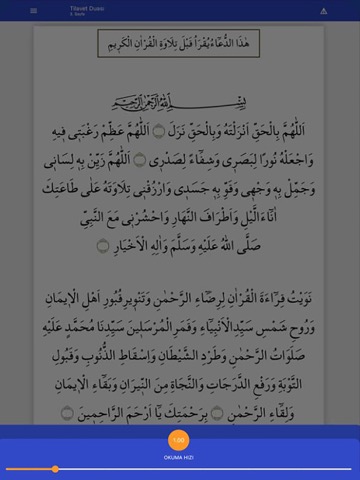 Tilavet Duası
2. Sayfa
هٰذَا الدُّعَٓاءُ يُقْرَأُ قَبْلَ تِلَاوَةِ الْقُرْاٰنِ الْكَرِيمِ
بِسْمِ اللهِ الرَّحْمٰنِ الرَّحِيمِ
اَللّٰهُمَّ بِالْحَقِّ اَنْزَلْتَهُ وَبِالْحَقِّ نَزَلَ ۝ اَللّٰهُمَّ عَظِّمْ رَغْبَتِي فِيهِ
وَاجْعَلْهُ نُورًا لِبَصَرِي وَشِفَٓاءً لِصَدْرِي ۝ اَللّٰهُمَّ زَيِّنْ بِهِ لِسَانِي
وَجَمِّلْ بِهِ وَجْهِي وَقَوِّ بِهِ جَسَدِي وَارْزُقْنِي تِلَاوَتَهُ عَلٰى طَاعَتِكَ
اٰنَٓاءَ الَّيْلِ وَاَطْرَافَ النَّهَارِ وَاحْشُرْنِي مَعَ النَّبِيِّ
صَلَّى اللهُ عَلَيْهِ وَسَلَّمَ وَاٰلِهِ الْاَخْيَارِ ۝
نَوَيْتُ قِرَٓاءَةَ الْقُرْاٰنِ لِرِضَٓاءِ الرَّحْمٰنِ وَتَنْوِيرِ قُبُورِ اَهْلِ الْاِيمَانِ
وَرُوحِ شَمْسِ سَيِّدِ الْاَنْبِيَٓاءِ وَقَمَرِ الْمُرْسَلِينَ سَيِّدِنَا مُحَمَّدٍ عَلَيْهِ
صَلَوَاتُ الرَّحْمٰنِ وَطَرْدِ الشَّيْطَانِ وَاِسْقَاطِ الذُّنُوبِ وَقَبُولِ
التَّوْبَةِ وَرَفْعِ الدَّرَجَاتِ وَالنَّجَاةِ مِنَ النِّيرَانِ وَبَقَٓاءِ الْاِيمَانِ
وَلِقَٓاءِ الرَّحْمٰنِ ۝ بِرَحْمَتِكَ يَٓا اَرْحَمَ الرَّاحِمِينَ ۝
1.00
OKUMA HIZI